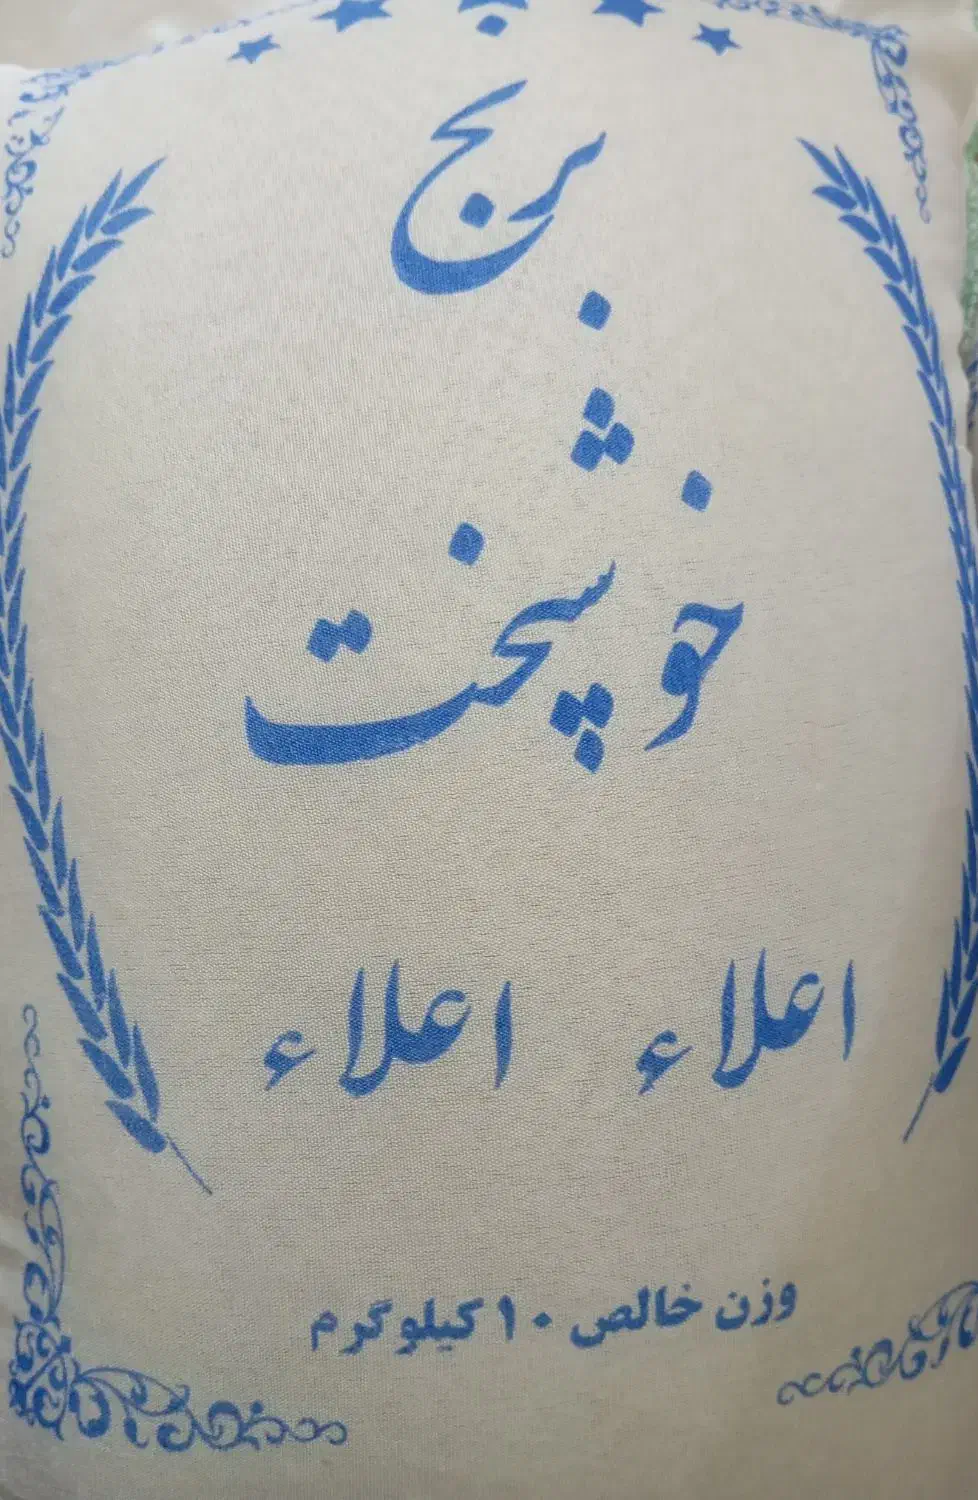 برنج
خوشپخت
اعلاء اعلاء
وزن خالص ۱۰ کیلوگرم